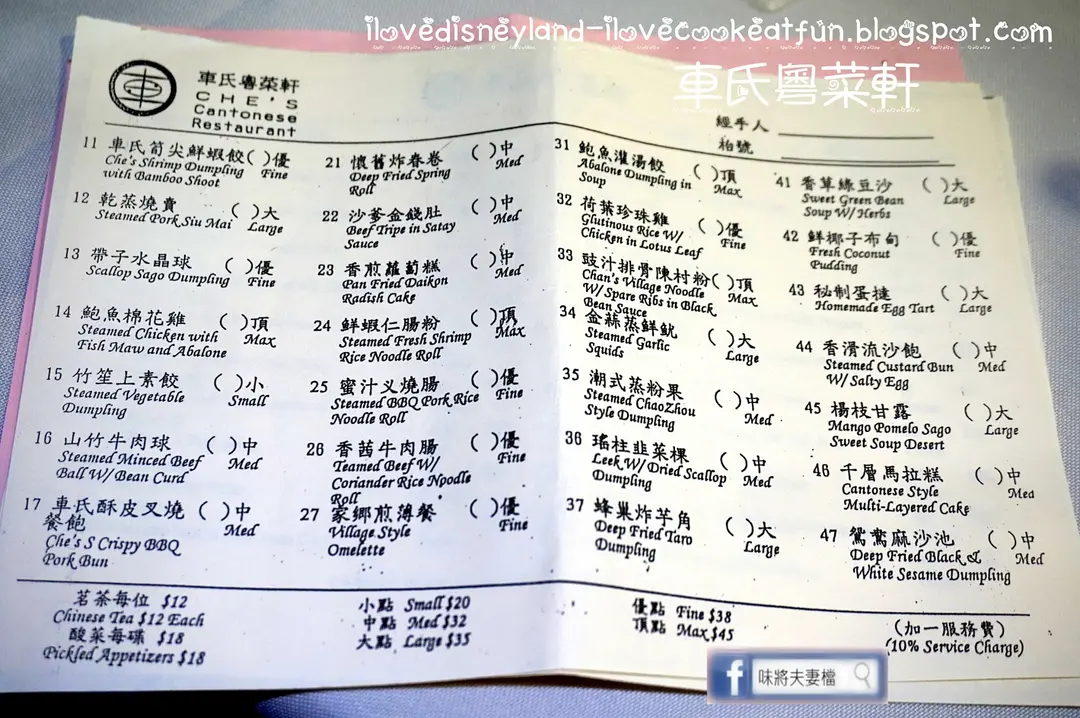 ilovedisneyland-ilovecookeatfun.blogspot.com
車氏粵菜軒
車氏粵菜軒
CHE'S
Cantonese
Restaurant
經手人
枱號
11 車氏筍尖鮮蝦餃( )優
Che's Shrimp Dumpling Fine
with Bamboo Shoot
12 乾蒸燒賣 ( )大
Steamed Pork Siu Mai Large
13 帶子水晶球 ( )優
Scallop Sago Dumpling Fine
14 鮑魚棉花雞 ( )頂
Steamed Chicken with Max
Fish Maw and Abalone
15 竹笙上素餃 ( )小
Steamed Vegetable Small
Dumpling
16 山竹牛肉球 ( )中
Steamed Minced Beef Med
Ball W/ Bean Curd
17 車氏酥皮叉燒 ( )中
餐飽 Med
Che's S Crispy BBQ
Pork Bun
21 懷舊炸春卷 ( )中
Deep Fried Spring Med
Roll
22 沙爹金錢肚 ( )中
Beef Tripe in Satay Med
Sauce
23 香煎蘿蔔糕 ( )中
Pan Fried Daikon Med
Radish Cake
24 鮮蝦仁腸粉 ( )頂
Steamed Fresh Shrimp Max
Rice Noodle Roll
25 蜜汁叉燒腸 ( )優
Steamed BBQ Pork Rice Fine
Noodle Roll
26 香茜牛肉腸 ( )優
Teamed Beef W/ Fine
Coriander Rice Noodle
Roll
27 家鄉煎薄餐 ( )優
Village Style Fine
Omelette
31 鮑魚灌湯餃 ( )頂
Abalone Dumpling in Max
Soup
32 荷葉珍珠雞 ( )優
Glutinous Rice W/ Fine
Chicken in Lotus Leaf
33 豉汁排骨陳村粉( )頂
Chan's Village Noodle Max
W/ Spare Ribs in Black
Bean Sauce
34 金蒜蒸鮮魷 ( )大
Steamed Garlic Large
Squids
35 潮式蒸粉果 ( )中
Steamed ChaoZhou Med
Style Dumpling
36 瑤柱韭菜粿 ( )中
Leek W/ Dried Scallop Med
Dumpling
37 蜂巢炸芋角 ( )大
Deep Fried Taro Large
Dumpling
41 香草綠豆沙 ( )大
Sweet Green Bean Large
Soup W/ Herbs
42 鮮椰子布甸 ( )優
Fresh Coconut Fine
Pudding
43 秘制蛋撻 ( )大
Homemade Egg Tart Large
44 香滑流沙飽 ( )中
Steamed Custard Bun Med
W/ Salty Egg
45 楊枝甘露 ( )大
Mango Pomelo Sago Large
Sweet Soup Desert
46 千層馬拉糕 ( )中
Cantonese Style Med
Multi-Layered Cake
47 鴛鴦麻沙池 ( )中
Deep Fried Black & Med
White Sesame Dumpling
茗茶每位 $12
Chinese Tea $12 Each
酸菜每碟 $18
Pickled Appetizers $18
小點 Small $20
中點 Med $32
大點 Large $35
優點 Fine $38
頂點 Max $45
(加一服務費)
(10% Service Charge)
味將夫妻檔